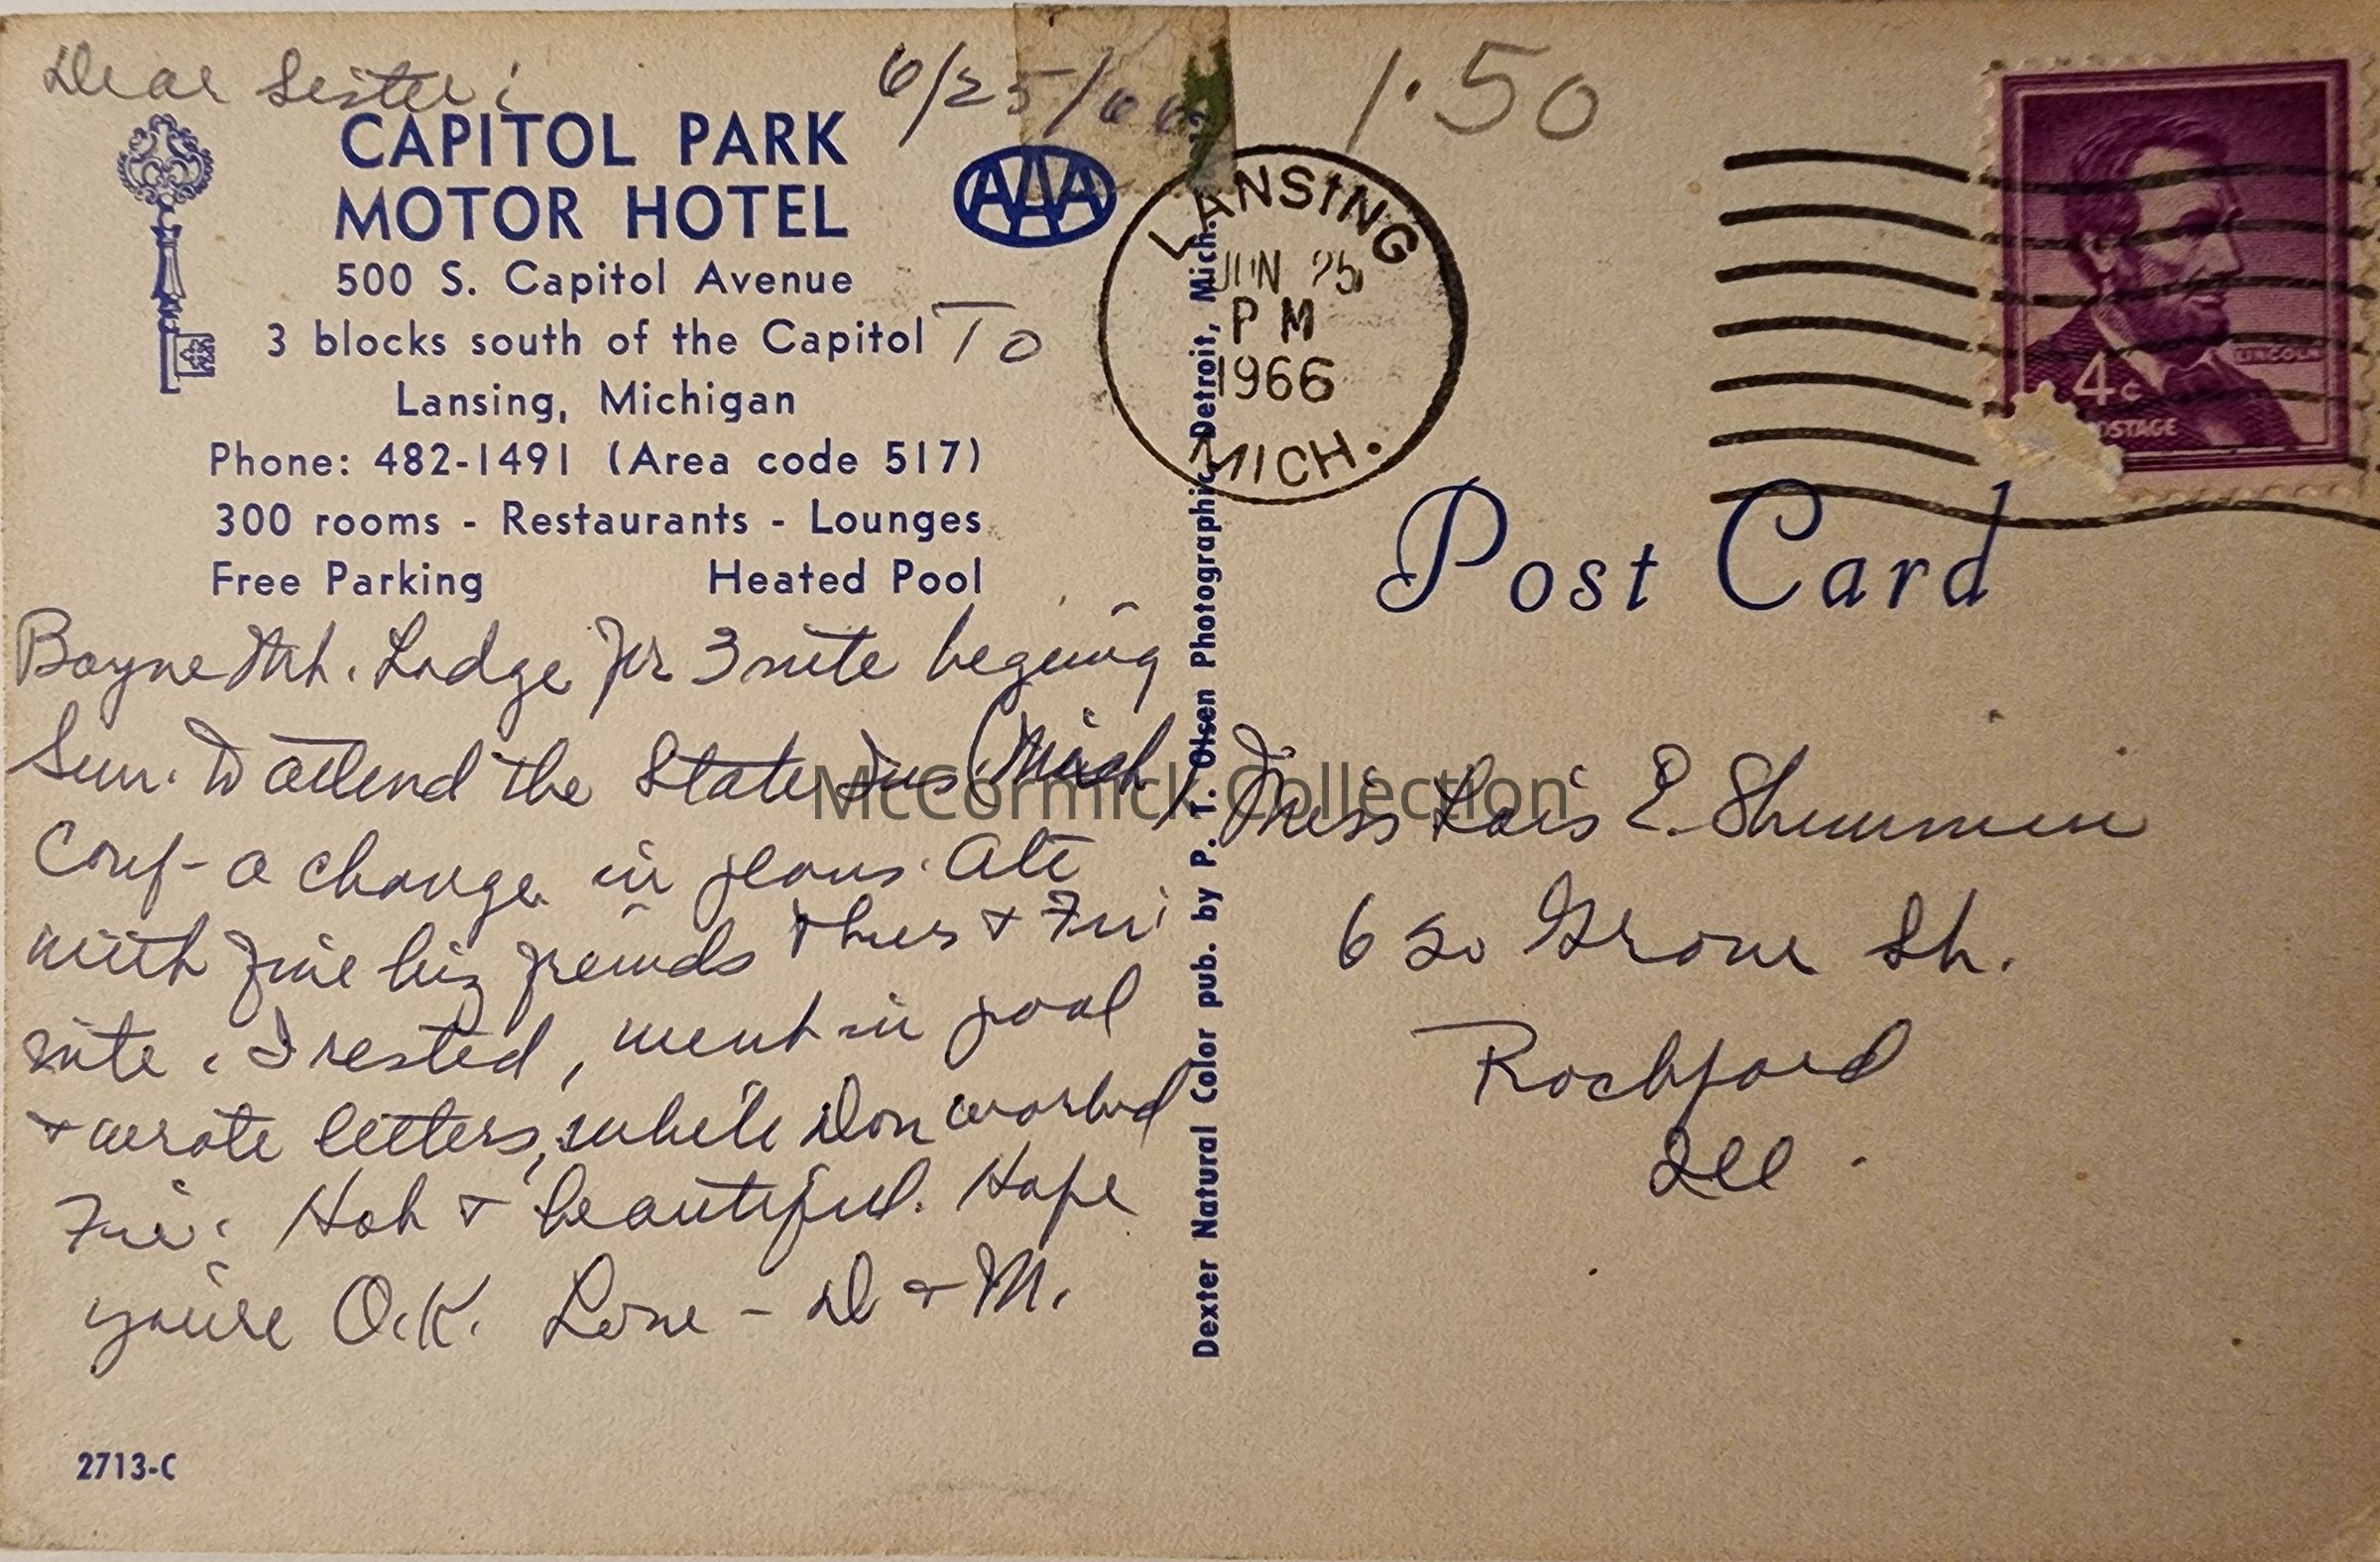 Dear Sister:
6/25/66
1.50
CAPITOL PARK
MOTOR HOTEL
AAA
500 S. Capitol Avenue
3 blocks south of the Capitol
To
Lansing, Michigan
Phone: 482-1491 (Area code 517)
300 rooms - Restaurants - Lounges
Free Parking Heated Pool
Boyne Mt. Lodge for 3 nite begining
Sun. To attend the State Ins (Mich)
Conf - a change in plans. Ate
with fine biz freinds Thurs + Fri
nite. I rested, went in pool
+ wrote letters, while Don worked
Fri. Hot + beautiful. Hope
you're O.K. Love - D + M.
2713-C
Dexter Natural Color pub. by P. T. Olsen Photographic, Detroit, Mich.
LANSING
JUN 25
PM
1966
MICH.
LINCOLN
4c
POSTAGE
Post Card
Miss Lois E.
620 Grove St.
Rockford
Ill.
McCormick Collection